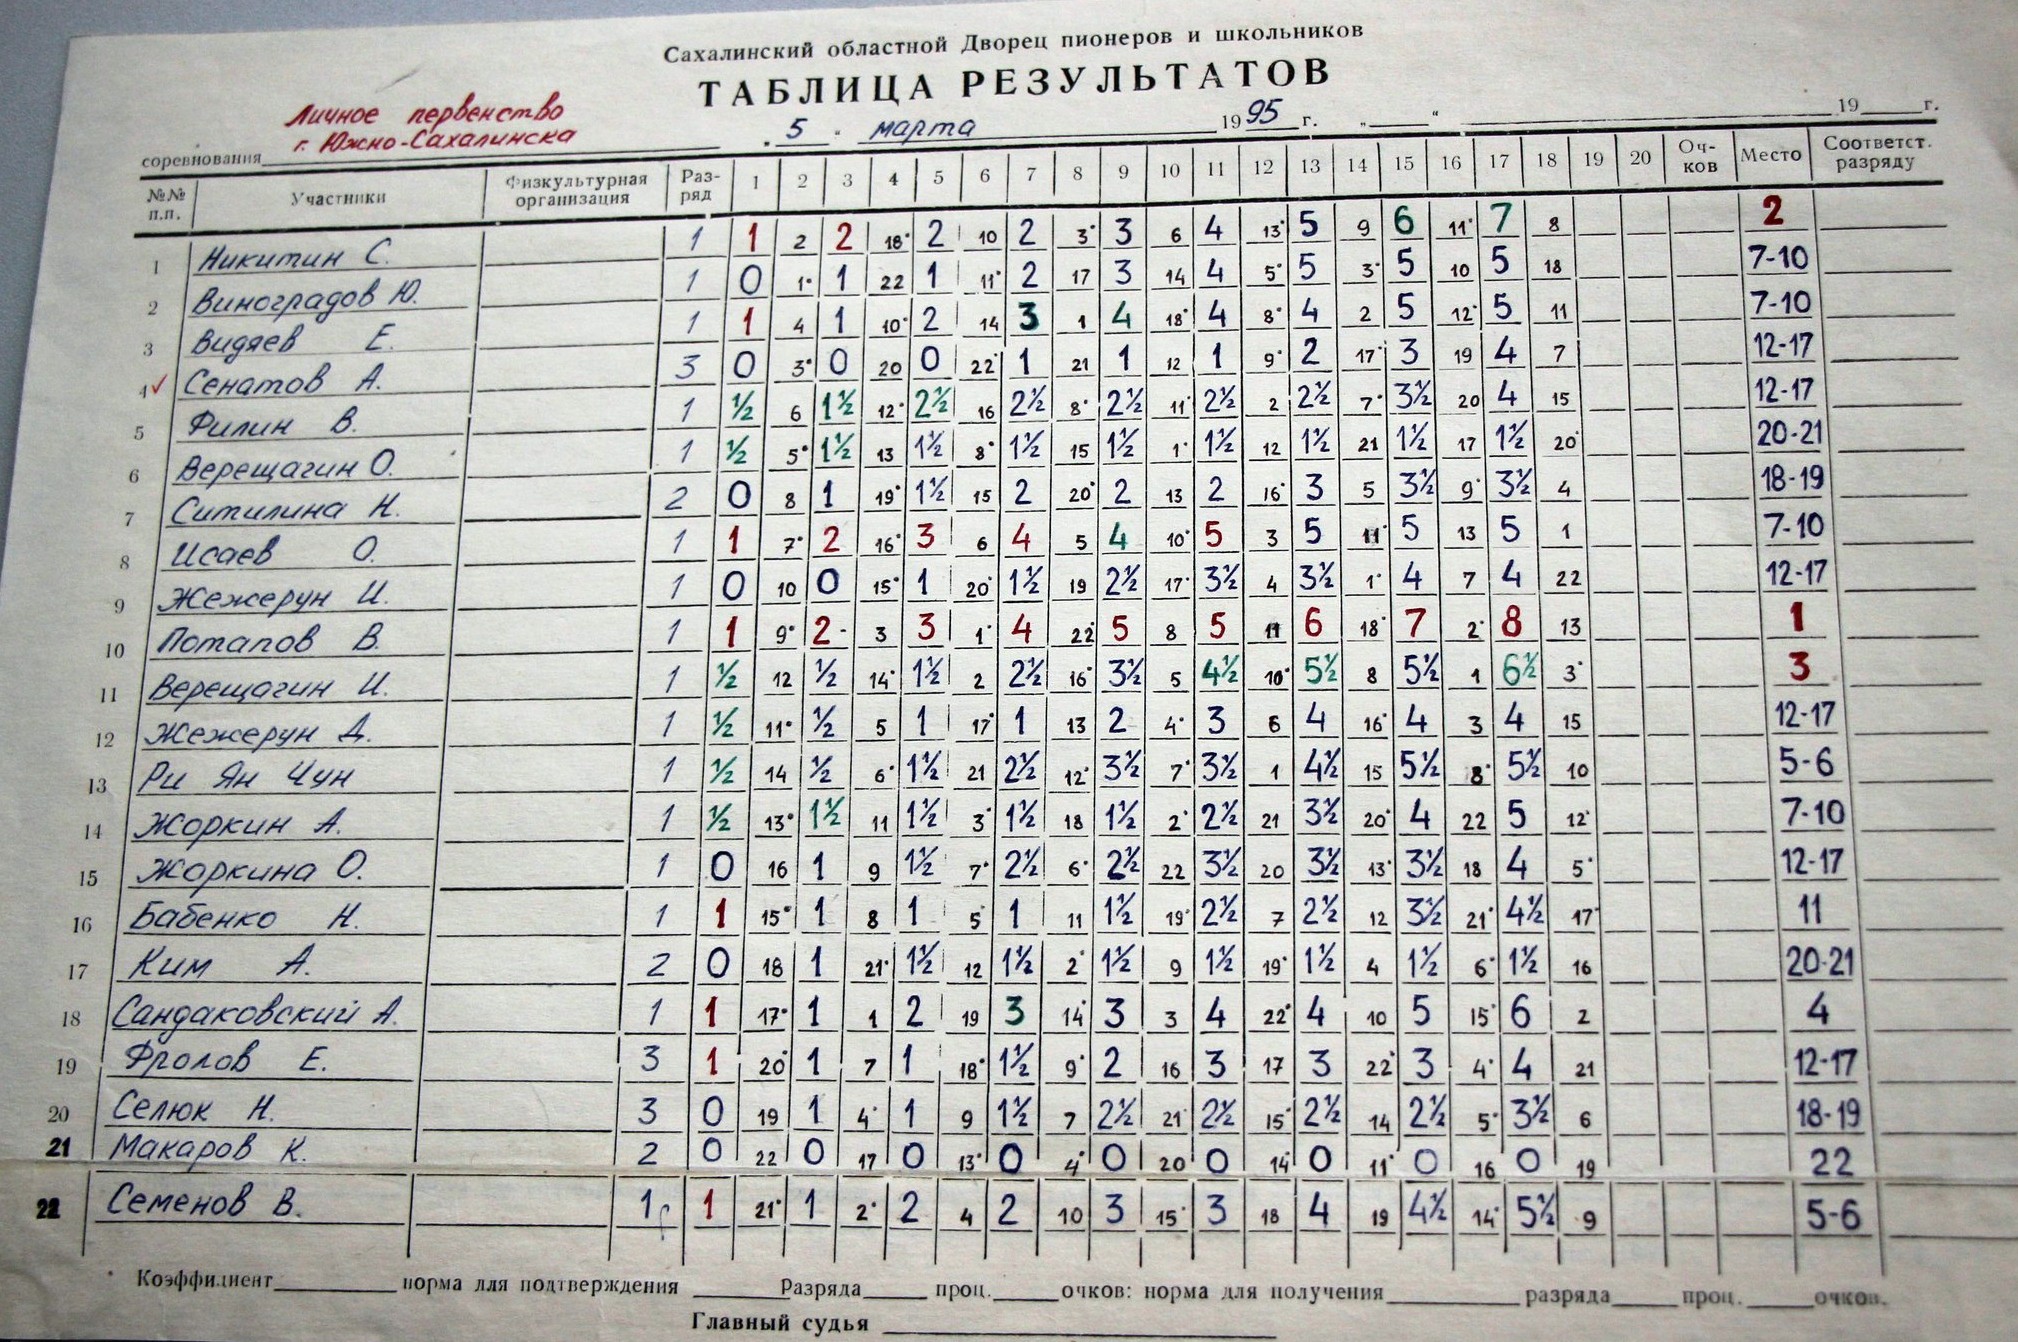 Сахалинский областной Дворец пионеров и школьников
ТАБЛИЦА РЕЗУЛЬТАТОВ
Личное первенство
г. Южно-Сахалинска
соревнования „5" марта 1995 г. „ “ 19 г.
№№ п.п. Участники Физкультурная организация Раз-ряд 1 2 3 4 5 6 7 8 9 10 11 12 13 14 15 16 17 18 19 20 Оч-ков Место Соответст. разряду
1 Никитин С. 1 1 2 2 18• 2 10 2 3• 3 6 4 13• 5 9 6 11• 7 8 2
2 Виноградов Ю. 1 0 1• 1 22 1 11• 2 17 3 14 4 5• 5 3• 5 10 5 18 7-10
3 Видяев Е. 1 1 4 1 10• 2 14 3 1 4 18• 4 8• 4 2 5 12• 5 11 7-10
4 ✓ Сенатов А. 3 0 3• 0 20 0 22• 1 21 1 12 1 9• 2 17• 3 19 4 7 12-17
5 Филин В. 1 ½ 6 1½ 12• 2½ 16 2½ 8• 2½ 11• 2½ 2 2½ 7• 3½ 20 4 15 12-17
6 Верещагин О. 1 ½ 5• 1½ 13 1½ 8• 1½ 15 1½ 1• 1½ 12 1½ 21 1½ 17 1½ 20• 20-21
7 Ситилина Н. 2 0 8 1 19• 1½ 15 2 20• 2 13 2 16• 3 5 3½ 9• 3½ 4 18-19
8 Исаев О. 1 1 7• 2 16• 3 6 4 5 4 10• 5 3 5 11• 5 13 5 1 7-10
9 Жежерун И. 1 0 10 0 15• 1 20• 1½ 19 2½ 17• 3½ 4 3½ 1• 4 7 4 22 12-17
10 Потапов В. 1 1 9• 2 3 3 1• 4 22• 5 8 5 11 6 18• 7 2• 8 13 1
11 Верещагин И. 1 ½ 12 ½ 14• 1½ 2 2½ 16• 3½ 5 4½ 10• 5½ 8 5½ 1 6½ 3• 3
12 Жежерун Д. 1 ½ 11• ½ 5 1 17• 1 13 2 4• 3 6 4 16• 4 3 4 15 12-17
13 Ри Ян Чун 1 ½ 14 ½ 6• 1½ 21 2½ 12• 3½ 7• 3½ 1 4½ 15 5½ 8• 5½ 10 5-6
14 Жоркин А. 1 ½ 13• 1½ 11 1½ 3• 1½ 18 1½ 2• 2½ 21 3½ 20• 4 22 5 12• 7-10
15 Жоркина О. 1 0 16 1 9 1½ 7• 2½ 6• 2½ 22 3½ 20 3½ 13• 3½ 18 4 5• 12-17
16 Бабенко Н. 1 1 15• 1 8 1 5• 1 11 1½ 19• 2½ 7 2½ 12 3½ 21• 4½ 17• 11
17 Ким А. 2 0 18 1 21• 1½ 12 1½ 2• 1½ 9 1½ 19• 1½ 4 1½ 6• 1½ 16 20-21
18 Сандаковский А. 1 1 17• 1 1 2 19 3 14• 3 3 4 22• 4 10 5 15• 6 2 4
19 Фролов Е. 3 1 20• 1 7 1 18• 1½ 9• 2 16 3 17 3 22• 3 4• 4 21 12-17
20 Селюк Н. 3 0 19 1 4• 1 9 1½ 7 2½ 21• 2½ 15• 2½ 14 2½ 5• 3½ 6 18-19
21 Макаров К. 2 0 22 0 17 0 13• 0 4• 0 20 0 14• 0 11• 0 16 0 19 22
22 Семенов В. 1 1 21• 1 2• 2 4 2 10 3 15• 3 18 4 19 4½ 14• 5½ 9 5-6
Коэффициент норма для подтверждения Разряда проц. очков: норма для получения разряда проц. очков.
Главный судья